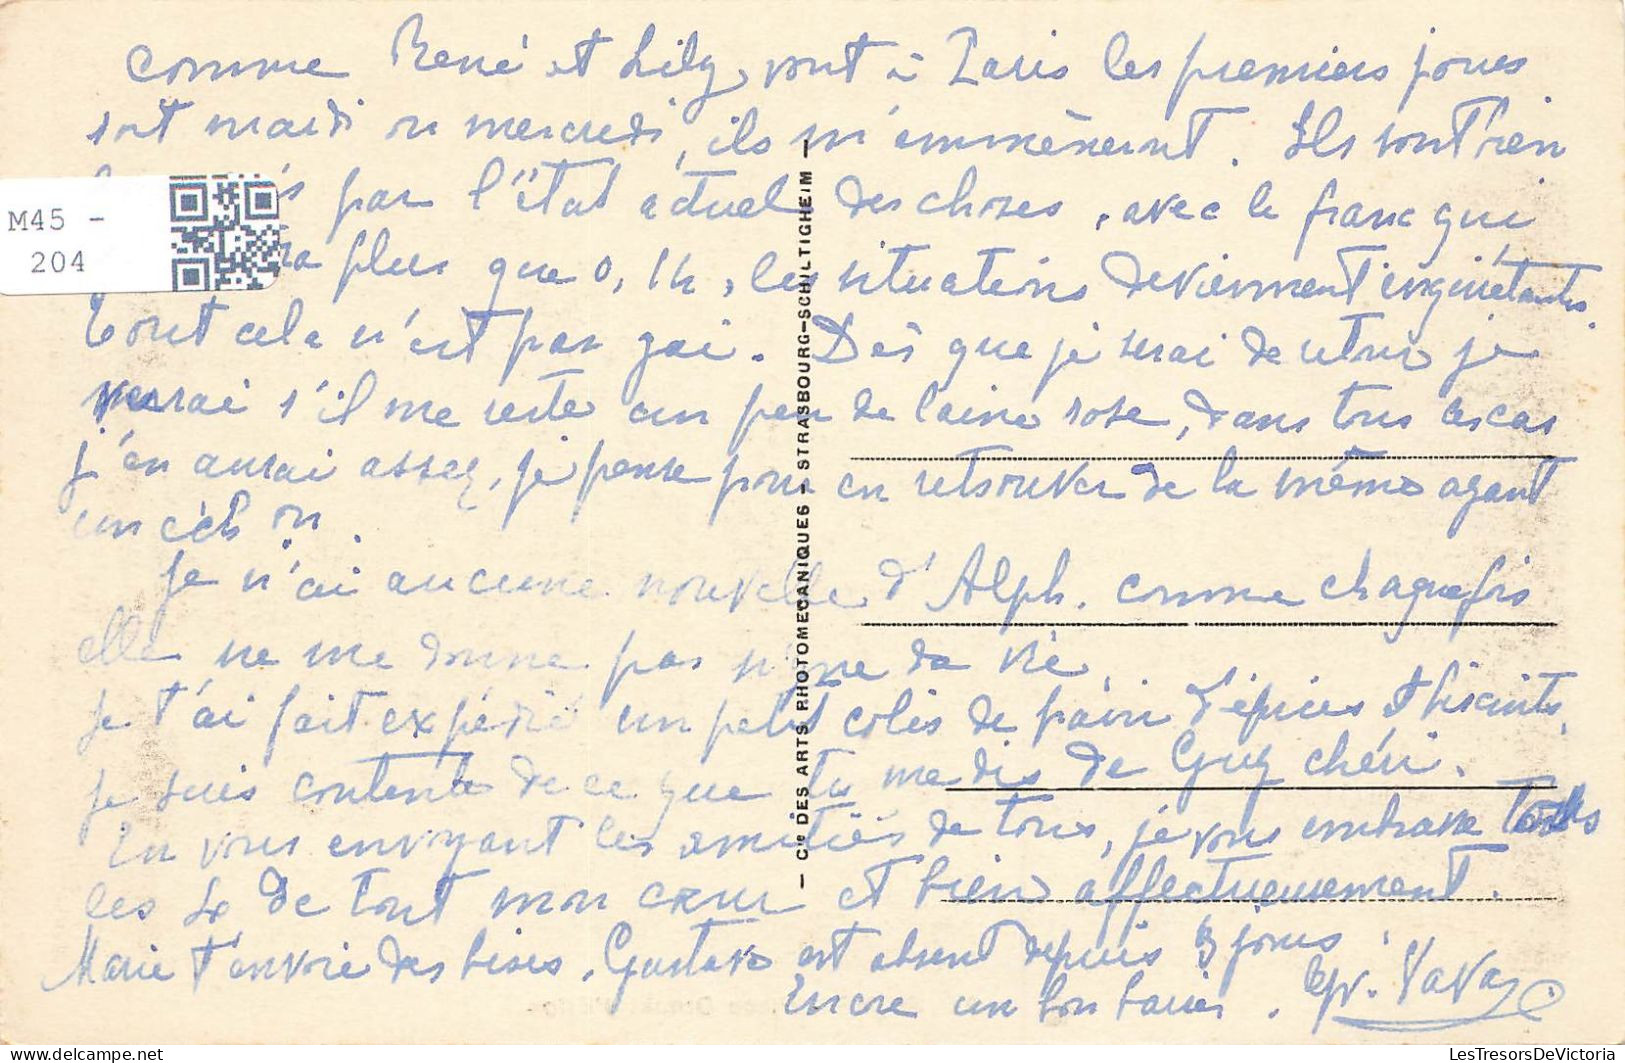 comme René et Lily vont à Paris les premiers jours
soit mardi ou mercredi, ils m'emmèneront. Ils sont bien
par l'état actuel des choses, avec le franc qui
plus que 0,14, les situations deviennent inquiétantes.
Tout cela n'est pas gai. Dès que je serai de retour je
verrai s'il me reste un peu de laine rose, dans tous les cas
j'en aurai assez, je pense pour en retrouver de la même ayant
un
Je n'ai aucune nouvelle d'Alph. comme chaque fois
elle ne me donne pas signe de vie.
Je t'ai fait expédié un petit colis de pain d'épices et biscuits,
je suis contente de ce que tu me dis de Guy chéri.
En vous envoyant les amitiés de tous, je vous embrasse tous
les 4 de tout mon cœur et bien affectueusement.
Marie t'envoie des bises. Gustave est absent depuis 3 jours.
Encre un bon baiser.
M45 -
204
— Cie DES ARTS PHOTOMECANIQUES - STRASBOURG-SCHILTIGHEIM —
LesTresorsDeVictoria